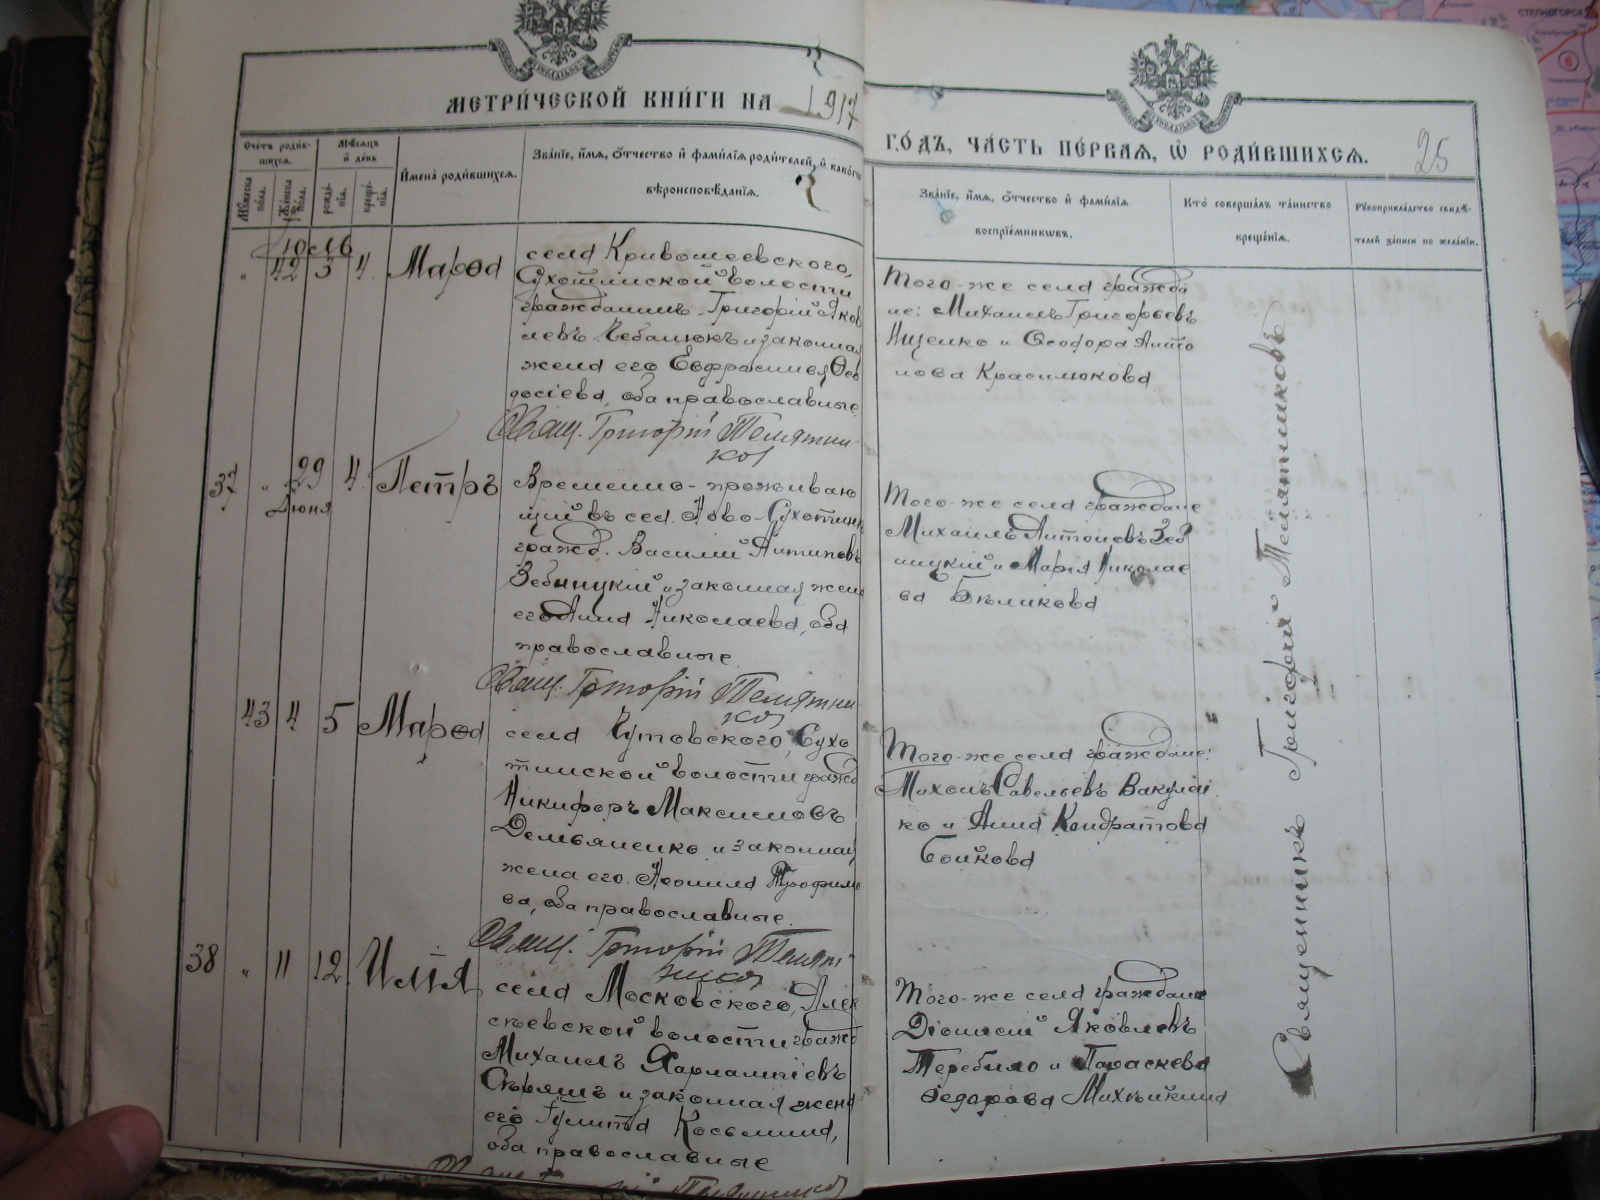 МЕТРИЧЕСКОЙ КНИГИ НА 1917
ГОДЪ, ЧАСТЬ ПЕРВАЯ, Ѡ РОДИВШИХСЯ.
25
Счетъ родив-
шихся.
Мѣсяцъ
и день
Мужеска
пола.
Женска
пола.
рожде-
нія.
креще-
нія.
Имена родившихся.
Званіе, имя, отчество и фамилія родителей, и какого
вѣроисповѣданія.
Званіе, имя, отчество и фамилія
воспріемниковъ.
Кто совершалъ таинство
крещенія.
Рукоприкладство свидѣ-
телей записи по желанію.
Юль
" 42 3 4 Марѳа
села Кривошеевского,
Сухотинской волости
гражданинъ Григорій Яков
левъ Чебанюкъ и законная
жена его Евфрасинія Ѳео
досіева, оба православные
Свящ. Григорій Телятни
ков
Того-же села гражда
не: Михаилъ Григорьевъ
Ищенко и Ѳеодора Анто
нова Красилюкова
37 " 29 4 Петръ
Июня
Временно-проживаю
щій въ сел. Ново-Сухотинк
гражд. Василій Антиповъ
Зебницкій и законная жена
его Анна Николаева, оба
православные
Свящ. Григорій Телятни
ков
Того-же села граждане
Михаилъ Антоновъ Зеб
ницкій и Марія Николае
ва Бѣликова
43 4 5 Марѳа
села Чутовского, Сухо
тинской волости гражд
Никифоръ Максимовъ
Демьяненко и законная
жена его Леонила Трофимо
ва, оба православные
Свящ. Григорій Телят
ников
Того-же села граждане:
Михаилъ Савельевъ Вакулен
ко и Анна Кондратова
Бойкова
38 " 11 12 Илія
села Московского, Алек
сѣевской волости гражд
Михаилъ Харлампіевъ
Стрѣлецъ и законная жена
его Гулитта Косьмина,
оба православные
Того-же села граждане
Діонисій Яковлевъ
Теребило и Параскева
Ѳедорова Михѣйкина
Священникъ Григорій Телятниковъ